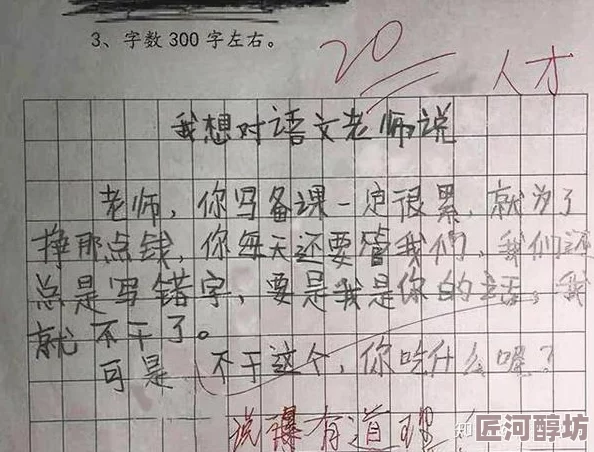 3、字数 300 字左右。
20
人才
我想对语文老师说
老师，你写备课一定很累，就为了
挣那点钱，你每天还要管我们，我们还
总是写错字，要是我是你的话，我
就不干了。
可是，不干这个，你吃什么呢？
说得有道理
知
匠河醇坊